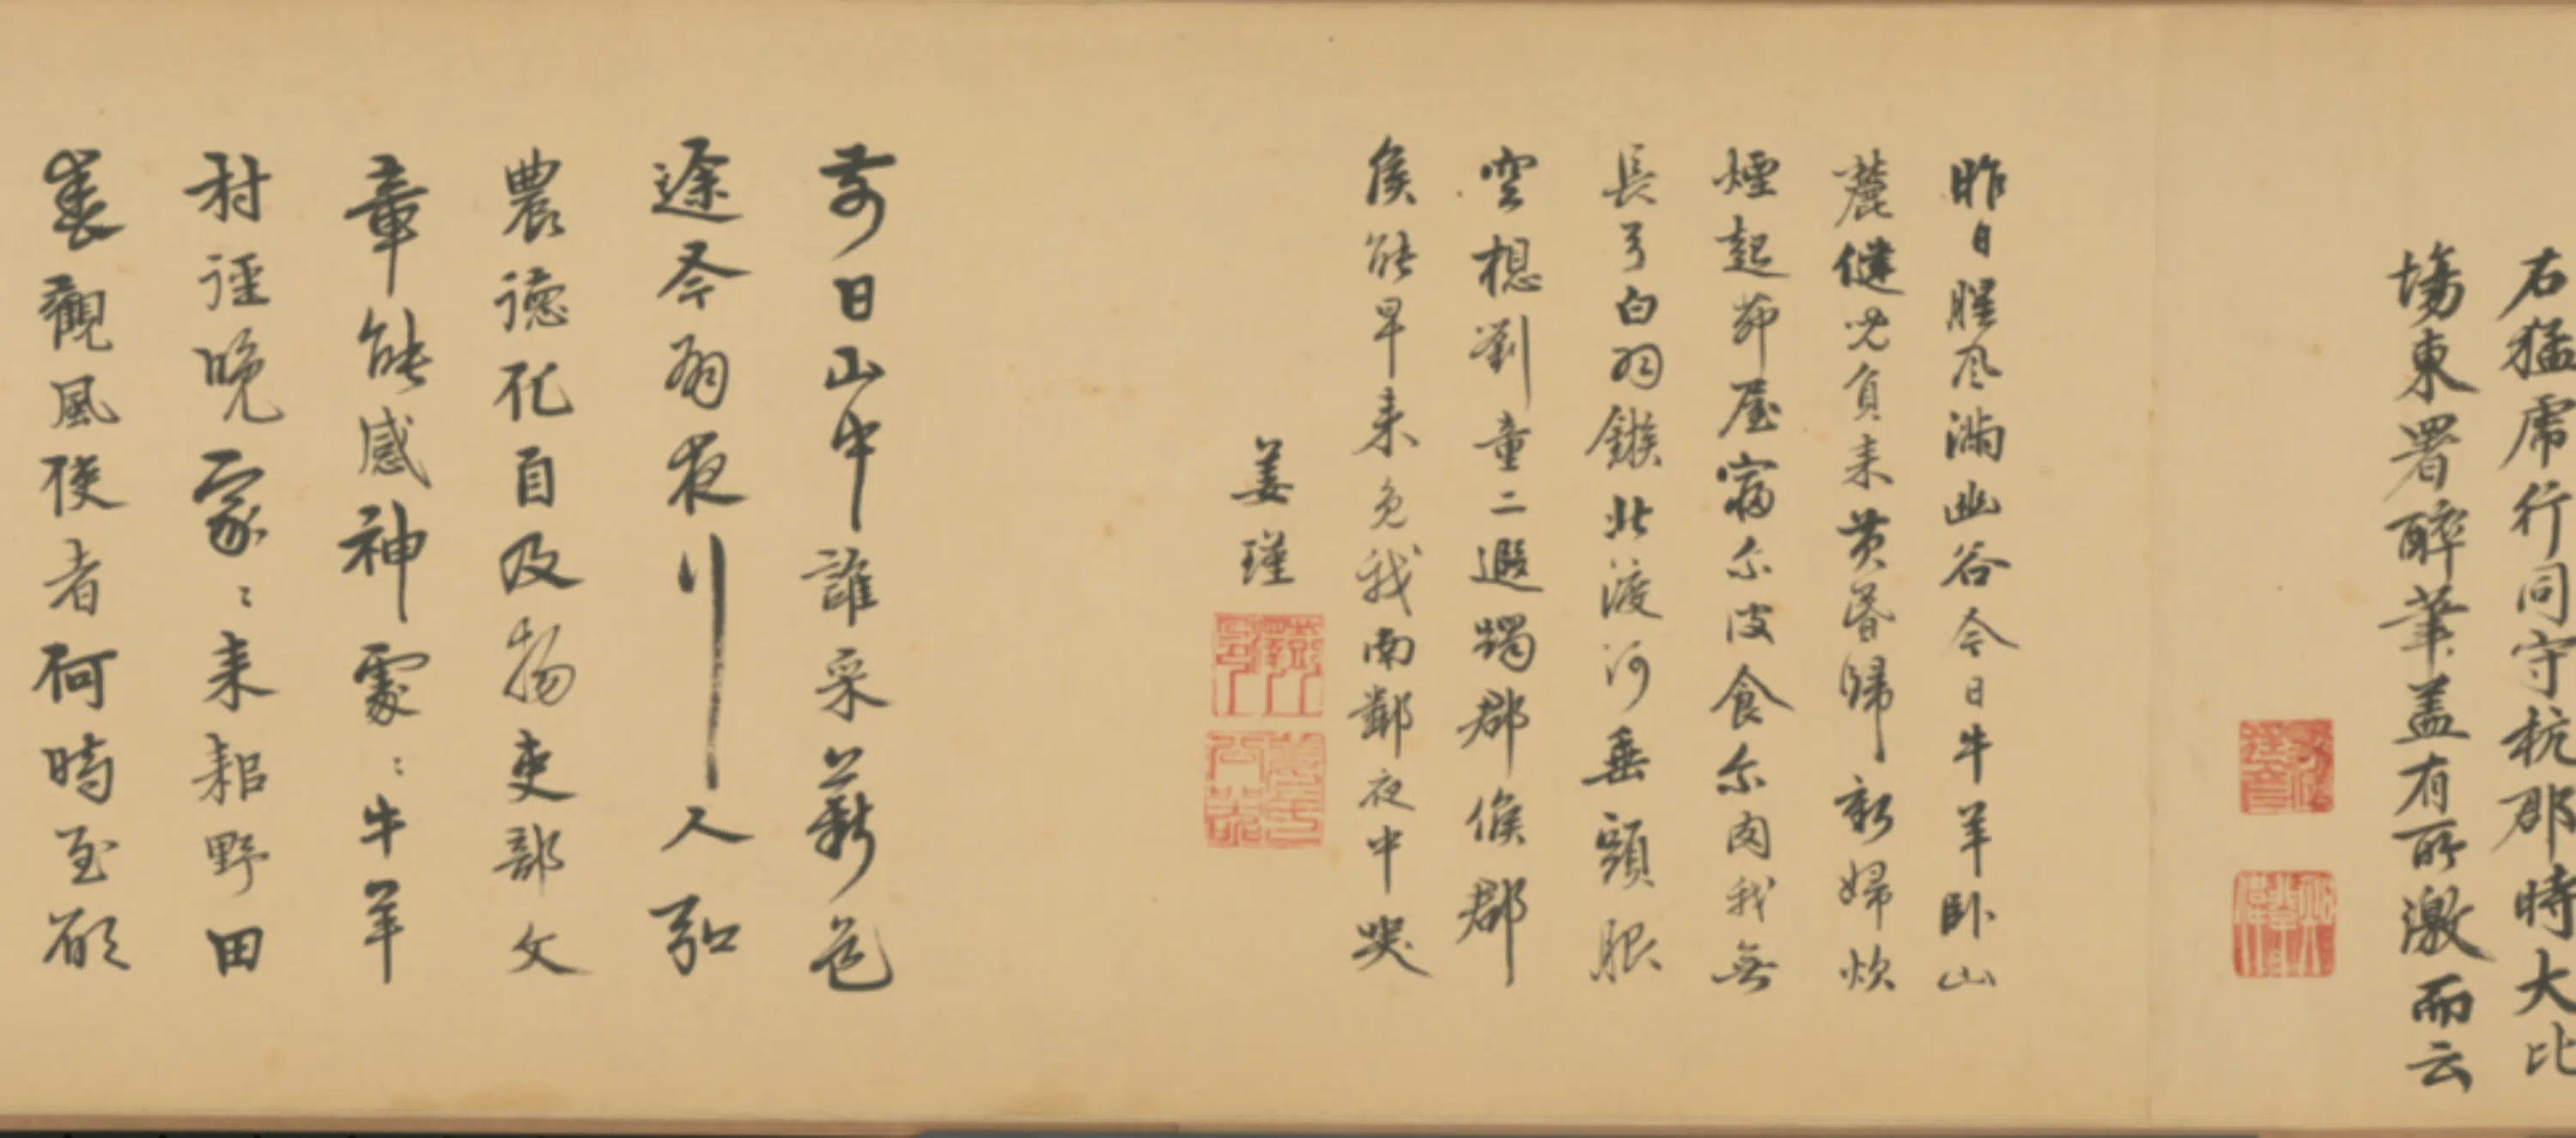 右猛虎行同守杭郡時大比
場東署醉筆蓋有所激而云
昨日腥風滿幽谷今日牛羊臥山
麓健兒負來黃昏歸新婦炊
煙起茆屋寢尔皮食尔肉我無
長弓白羽鏃北渡河垂頭眼
空想劉童二遐躅郡侯郡
侯能早來免我南鄰夜中哭
姜瑾
前日山中誰采薪邑
途今有夜行人弘
農德化自及物吏部文
章能感神家〻牛羊
村徑晚家〻耒耜野田
春觀風使者何時至願